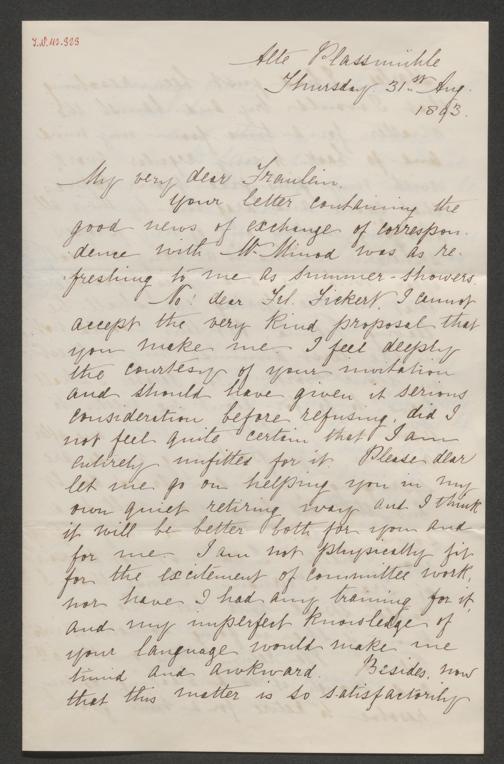 I.N. 40.323
Alte Plassmühle
Thursday 31st Aug.
1893.
My very dear Fraulein.
Your letter containing the
good news of exchange of correspon-
dence with Mr. Minod was as re-
freshing to me as summer-showers.
No! dear Frl. Fickert I cannot
accept the very kind proposal that
you make me. I feel deeply
the courtesy of your invitation
and should have given it serious
consideration before refusing, did I
not feel quite certain that I am
entirely unfitted for it. Please dear
let me go on helping you in my
own quiet retiring way and I think
it will be better both for you and
for me. I am not physically fit
for the excitement of committee work,
nor have I had any training for it
and my imperfect knowledge of
your language would make me
timid and awkward. Besides, now
that this matter is so satisfactorily